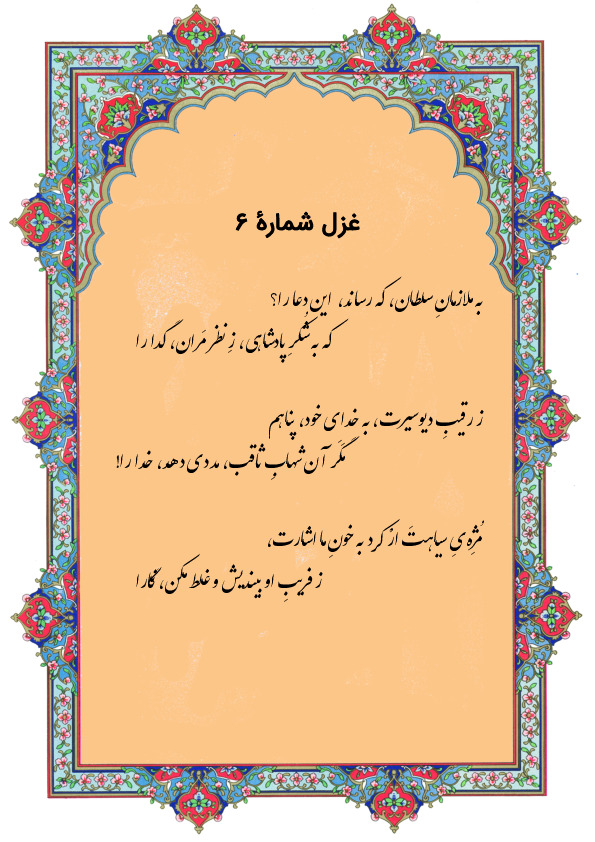 غزل شمارهٔ ۶
به ملازمانِ سلطان، که رساند، این دُعا را؟
که به شُکرِ پادشاهی، زِ نظر مَران، گدا را
ز رقیبِ دیوسیرت، به خدای خود، پناهم
مگَر آن شهابِ ثاقب، مددی دهد، خدا را!
مُژِه‌یِ سیاهتَ ارْ کرد به خونِ ما اشارت،
ز فریبِ او بیندیش و غلط مکن، نگارا